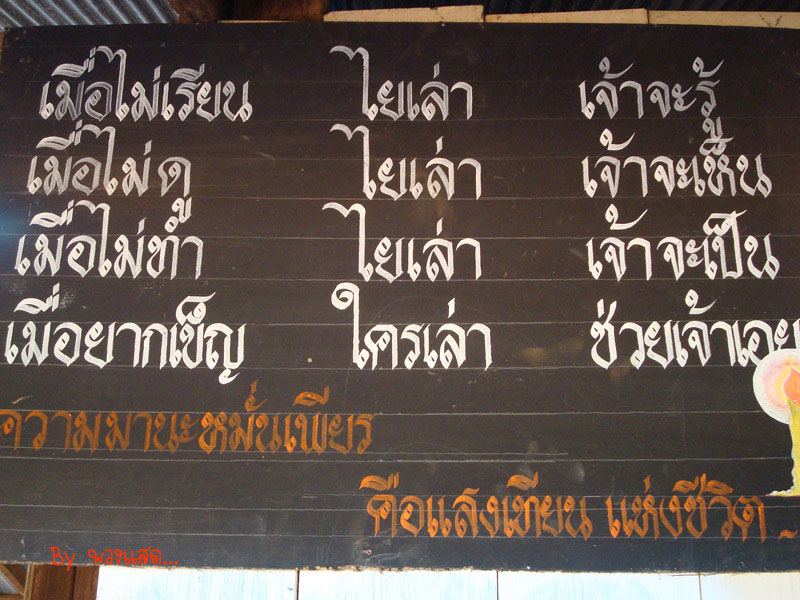 เมื่อไม่เรียน ไยเล่า เจ้าจะรู้
เมื่อไม่ดู ไยเล่า เจ้าจะเห็น
เมื่อไม่ทำ ไยเล่า เจ้าจะเป็น
เมื่อยากเข็ญ ใครเล่า ช่วยเจ้าเอย
ความมานะหมั่นเพียร
คือแสงเทียน แห่งชีวิต ~
By พวงแสด...